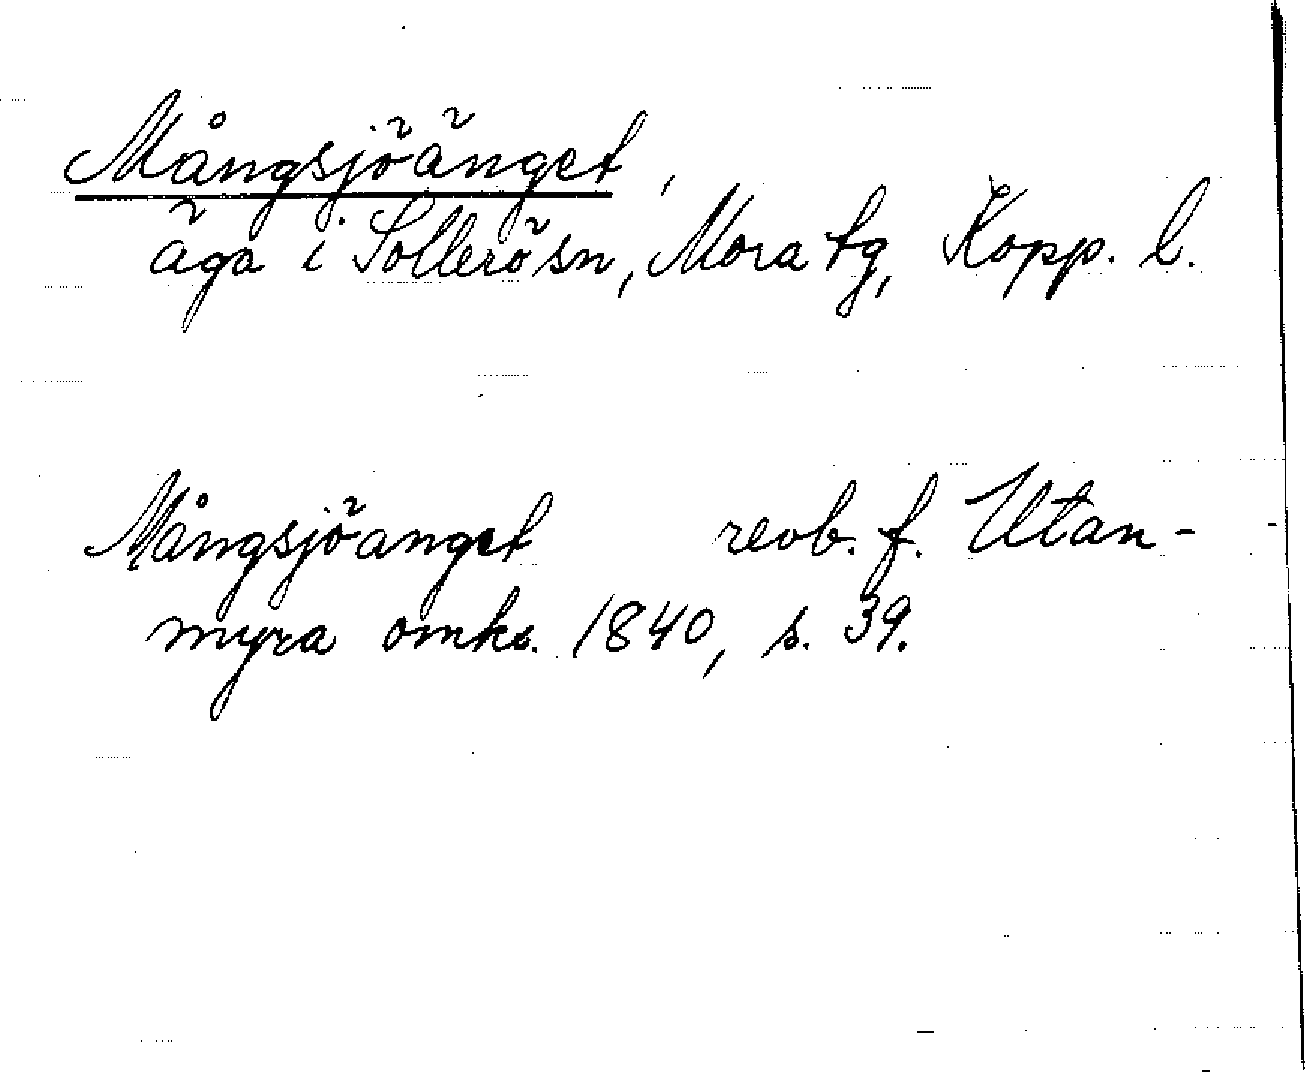 Mångsjöänget,
äga i Sollerö sn, Mora tg, Kopp. l.
Mångsjöanget revb. f. Utan-
myra omkr. 1840, s. 39.